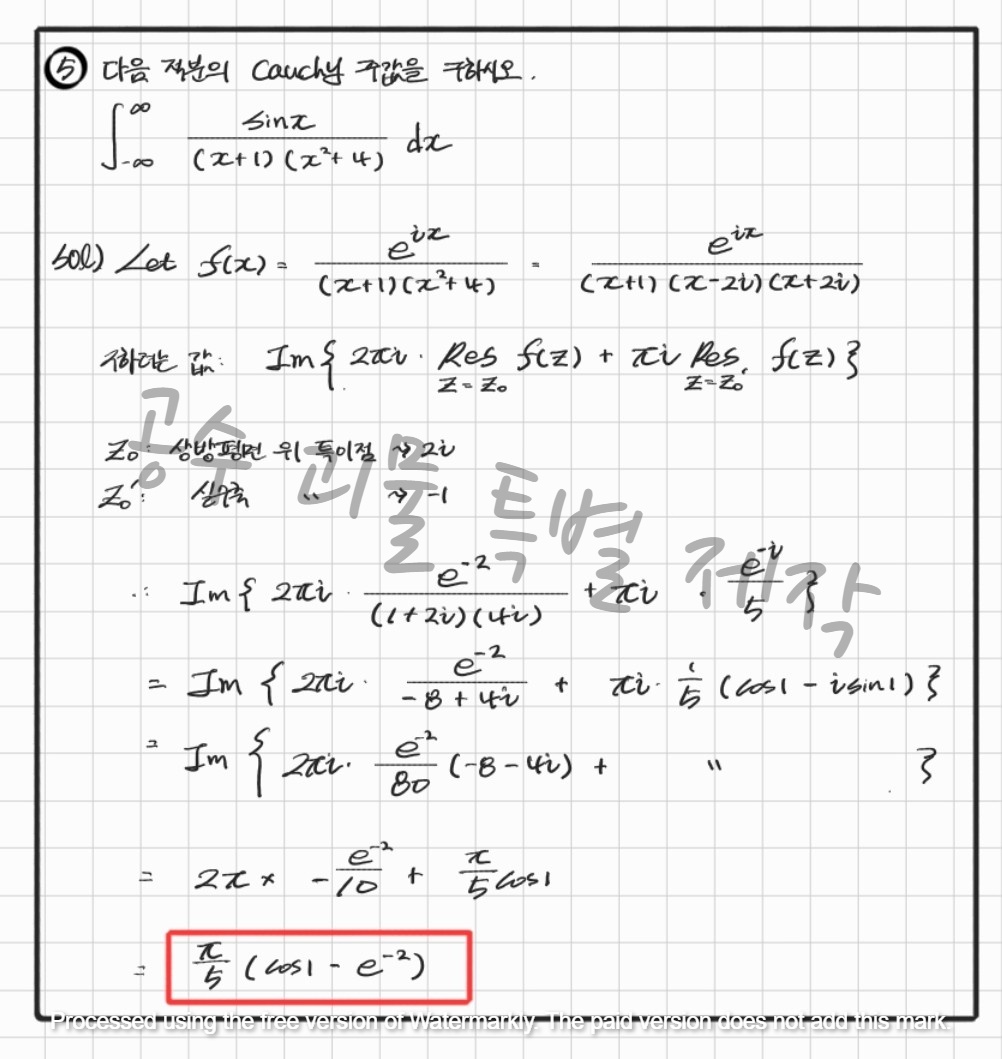 ⑤ 다음 적분의 Cauchy 주값을 구하시오.
∫_{-∞}^{∞} sinx / (x+1)(x²+4) dx
sol) Let f(x) = e^{ix} / (x+1)(x²+4) = e^{ix} / (x+1)(x-2i)(x+2i)
구하려는 값: Im{ 2πi · Res_{z=z₀} f(z) + πi Res_{z=z₀'} f(z) }
z₀: 상방평면 위 특이점 ⇝ 2i
z₀': 실수축 〃 ⇝ -1
공수 괴물 특별 제작
∴ Im{ 2πi · e^{-2} / (1+2i)(4i) + πi · e^{-i} / 5 }
= Im{ 2πi · e^{-2} / -8+4i + πi · 1/5 (cos1 - isin1) }
= Im{ 2πi · e^{-2} / 80 (-8-4i) + 〃 }
= 2π × - e^{-2} / 10 + π/5 cos1
= π/5 (cos1 - e^{-2})
Processed using the free version of Watermarkly. The paid version does not add this mark.